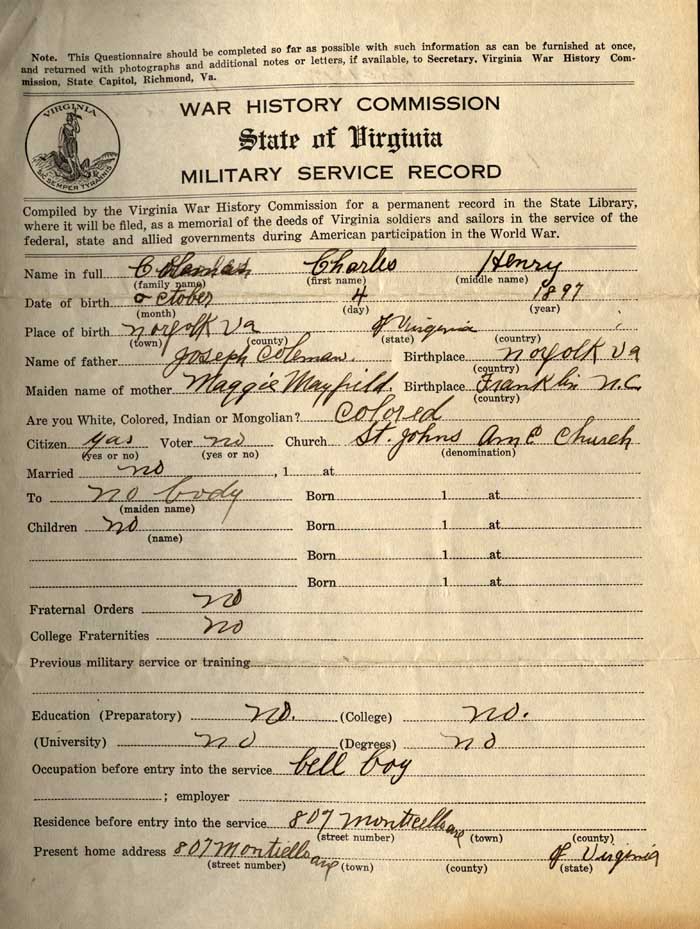 Note. This Questionnaire should be completed so far as possible with such information as can be furnished at once,
and returned with photographs and additional notes or letters, if available, to Secretary. Virginia War History Com-
mission, State Capitol, Richmond, Va.
VIRGINIA
SIC SEMPER TYRANNIS
WAR HISTORY COMMISSION
State of Virginia
MILITARY SERVICE RECORD
Compiled by the Virginia War History Commission for a permanent record in the State Library,
where it will be filed, as a memorial of the deeds of Virginia soldiers and sailors in the service of the
federal, state and allied governments during American participation in the World War.
Name in full Coleman Charles Henry
(family name) (first name) (middle name)
Date of birth October 4 1897
(month) (day) (year)
Place of birth Norfolk Va of Virginia
(town) (county) (state) (country)
Name of father Joseph Coleman. Birthplace Norfolk Va
(country)
Maiden name of mother Maggie Mayfield. Birthplace Franklin N.C.
(country)
Are you White, Colored, Indian or Mongolian? Colored
Citizen yas Voter no Church St. Johns AmE Church
(yes or no) (yes or no) (denomination)
Married no , 1 at
To no body Born 1 at
(maiden name)
Children no Born 1 at
(name)
Born 1 at
Born 1 at
Fraternal Orders no
College Fraternities no
Previous military service or training
Education (Preparatory) no. (College) no.
(University) no (Degrees) no
Occupation before entry into the service bell boy
; employer
Residence before entry into the service 807 Monticello ave
(street number) (town) (county)
Present home address 807 Monticello ave of Virginia
(street number) (town) (county) (state)